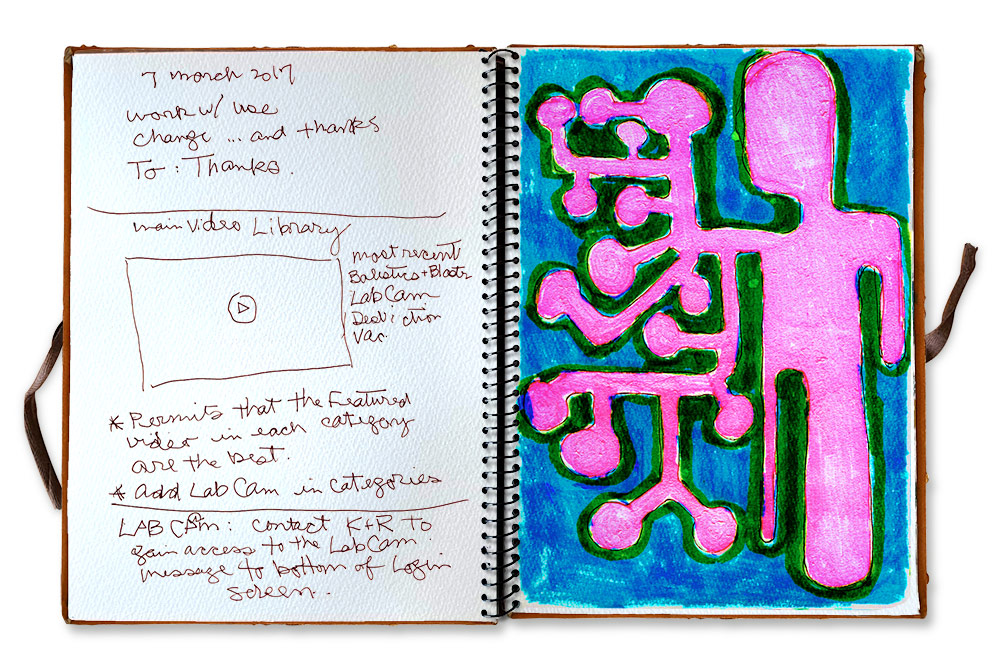 7 march 2017
work w/ use
change ... and thanks
To : Thanks.
main video Library
most recent
Balistics + Blasts
LabCam
Vac.
* Permits that the Featured
video in each category
are the best.
* add Lab Cam in categories
LAB CAm : contact K+R to
gain access to the LabCam.
message to bottom of Login
screen.